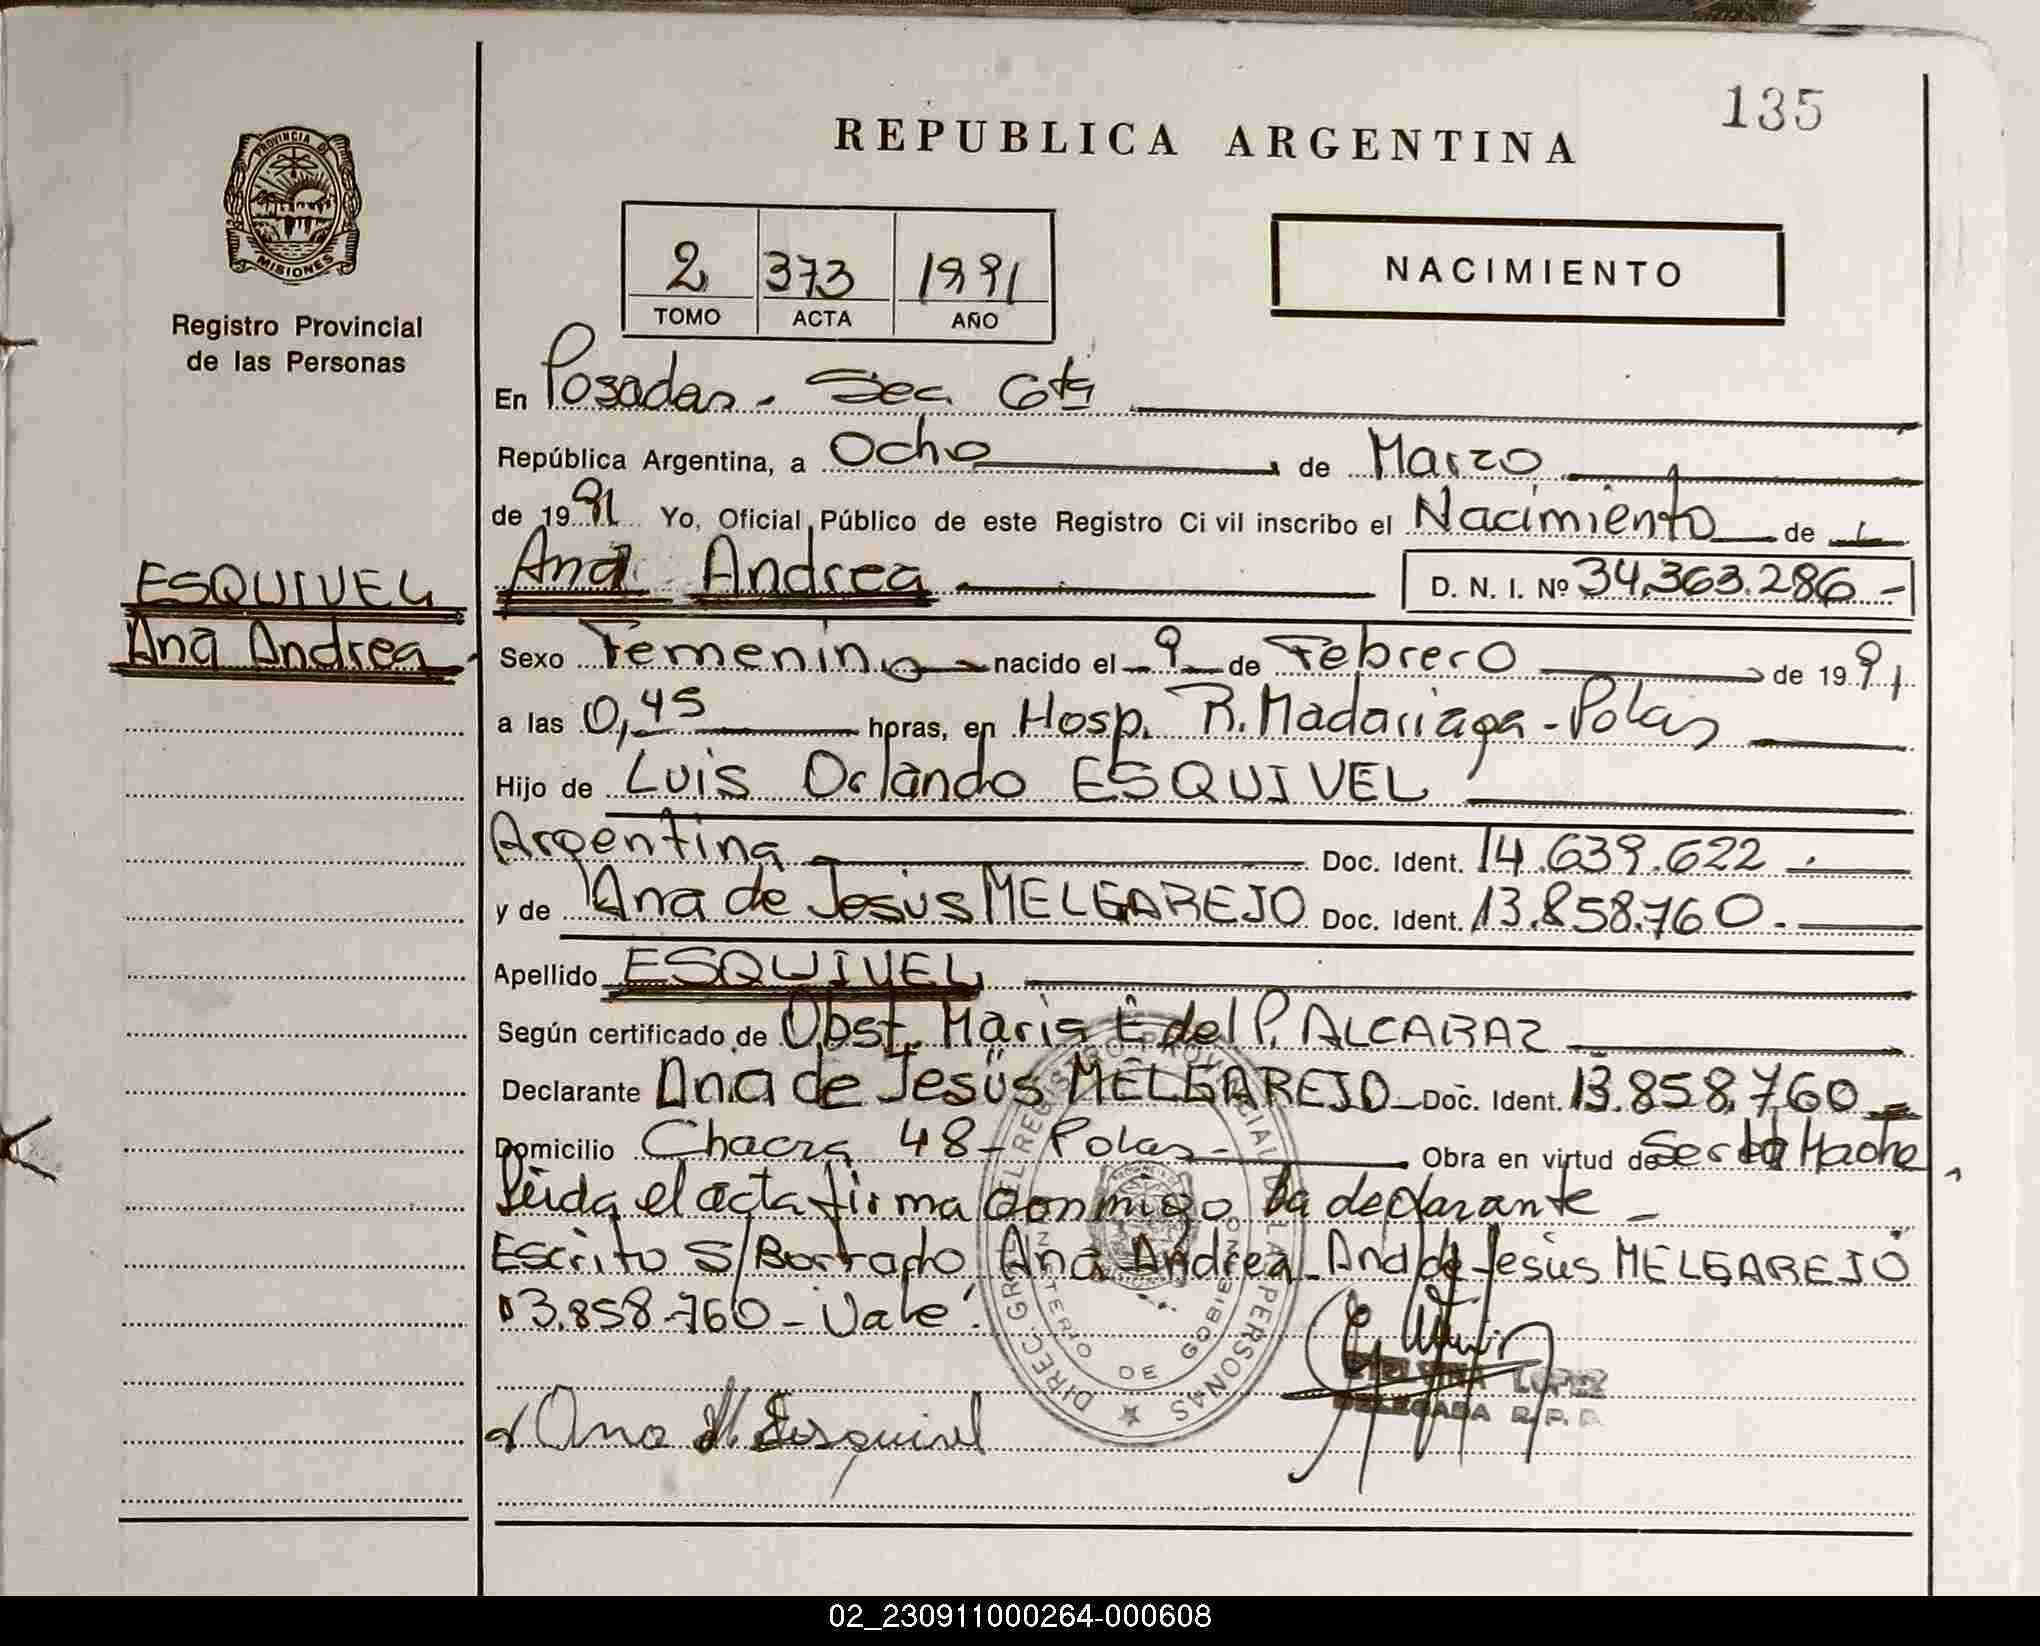 135
REPUBLICA ARGENTINA
PROVINCIA DE
MISIONES
Registro Provincial
de las Personas
2 373 1991
TOMO ACTA AÑO
NACIMIENTO
En Posadas - Sec. 6ta
República Argentina, a Ocho de Marzo
de 1991 Yo, Oficial Público de este Registro Ci vil inscribo el Nacimiento de
ESQUIVEL
Ana Andrea
Ana Andrea D. N. I. Nº 34.363.286.-
Sexo Femenino nacido el 9 de Febrero de 1991
a las 0,45 horas, en Hosp. R. Madariaga - Pdas
Hijo de Luis Orlando ESQUIVEL
Argentina Doc. Ident. 14.639.622.-
y de Ana de Jesús MELGAREJO Doc. Ident. 13.858.760.-
Apellido ESQUIVEL
Según certificado de Obst. María E. del P. ALCARAZ
Declarante Ana de Jesús MELGAREJO Doc. Ident. 13.858.760
Domicilio Chacra 48 - Pdas - Obra en virtud de Ser la Madre
Leída el acta firma conmigo la declarante -
Escrito S/Borrado Ana Andrea - Ana de Jesús MELGAREJO
13.858.760 - Vale.
Ana M. de Esquivel
LOPEZ
DELEGADA R. P. P.
DIREC. GRAL. DEL REGISTRO PROVINCIAL DE LAS PERSONAS
MINISTERIO DE GOBIERNO
02_230911000264-000608